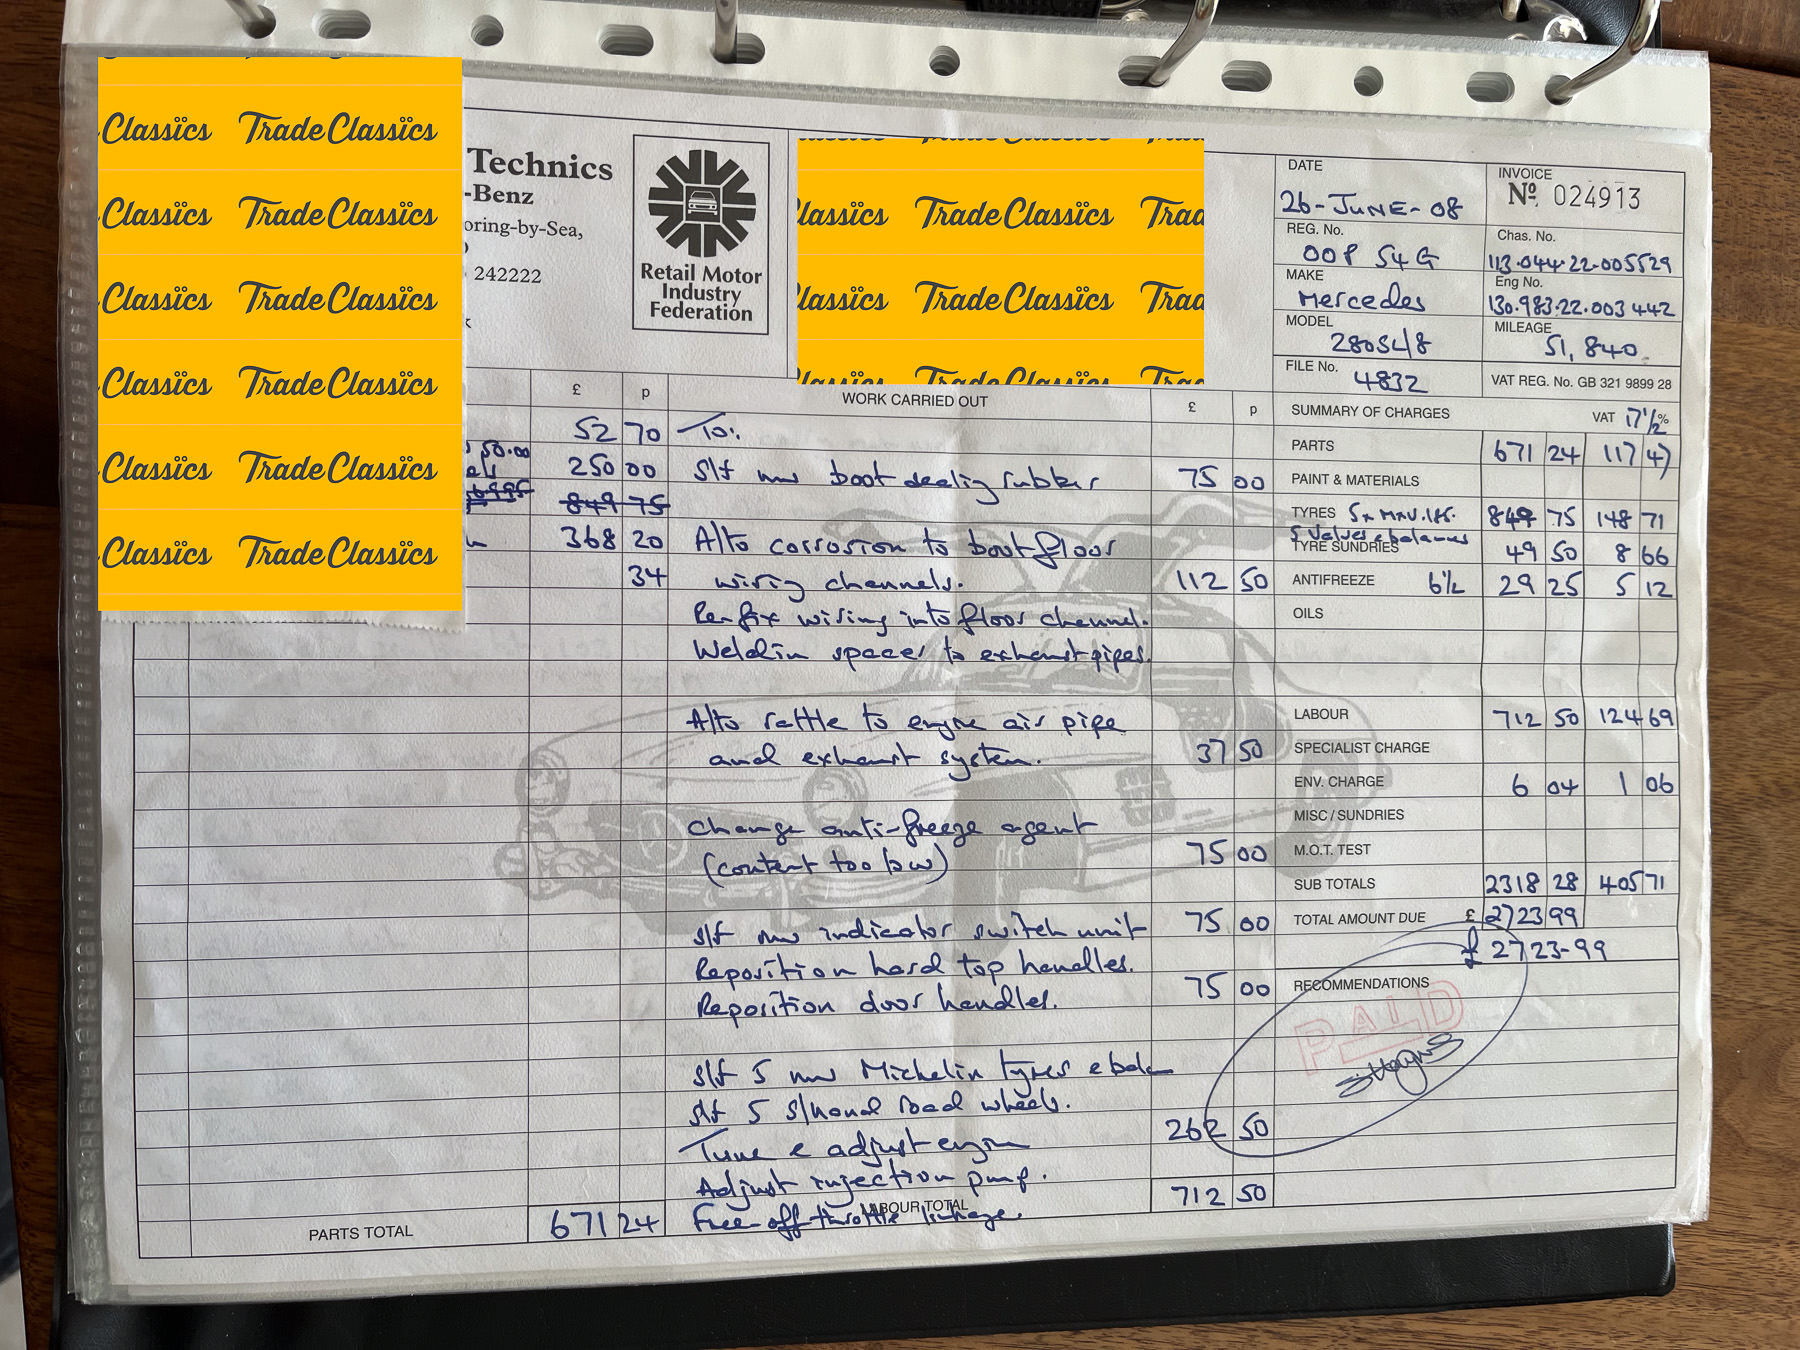 Classics Trade Classics
Classics Trade Classics
Classics Trade Classics
Classics Trade Classics
Classics Trade Classics
Classics Trade Classics
Technics
-Benz
oring-by-Sea,
242222
k
Retail Motor
Industry
Federation
lassics Trade Classics Trad
lassics Trade Classics Trad
lassics Trade Classics Trad
DATE
26-JUNE-08
INVOICE
Nº 024913
REG. No.
OOP 54 G
Chas. No.
113.044.22.005529
MAKE
Mercedes
Eng No.
130.983.22.003442
MODEL
280SL/8
MILEAGE
51,840.
FILE No.
4832
VAT REG. No. GB 321 9899 28
£ p
WORK CARRIED OUT
£ p
SUMMARY OF CHARGES VAT 17½%
52 70 To:
50.00
250 00 S/f new boot sealing rubber 75 00
849 75
368 20 A/to corrosion to boot floor
34 wiring channels. 112 50
Re-fix wiring into floor channel.
Weld in spacer to exhaust pipes.
A/to rattle to engine air pipe
and exhaust system. 37 50
Change anti-freeze agent
(content too low) 75 00
S/f new indicator switch unit 75 00
Reposition hard top handles.
Reposition door handles. 75 00
S/f 5 new Michelin tyres & bal
S/f 5 s/hand road wheels.
Tune & adjust engine 262 50
Adjust injection pump.
Free-off throttle linkage.
LABOUR TOTAL 712 50
PARTS TOTAL 671 24
PARTS 671 24 117 47
PAINT & MATERIALS
TYRES 5x MXV.185. 849 75 148 71
5 Valves & balances
TYRE SUNDRIES 49 50 8 66
ANTIFREEZE 6½ 29 25 5 12
OILS
LABOUR 712 50 124 69
SPECIALIST CHARGE
ENV. CHARGE 6 04 1 06
MISC / SUNDRIES
M.O.T. TEST
SUB TOTALS 2318 28 405 71
TOTAL AMOUNT DUE £ 2723 99
£ 2723-99
RECOMMENDATIONS
PAID